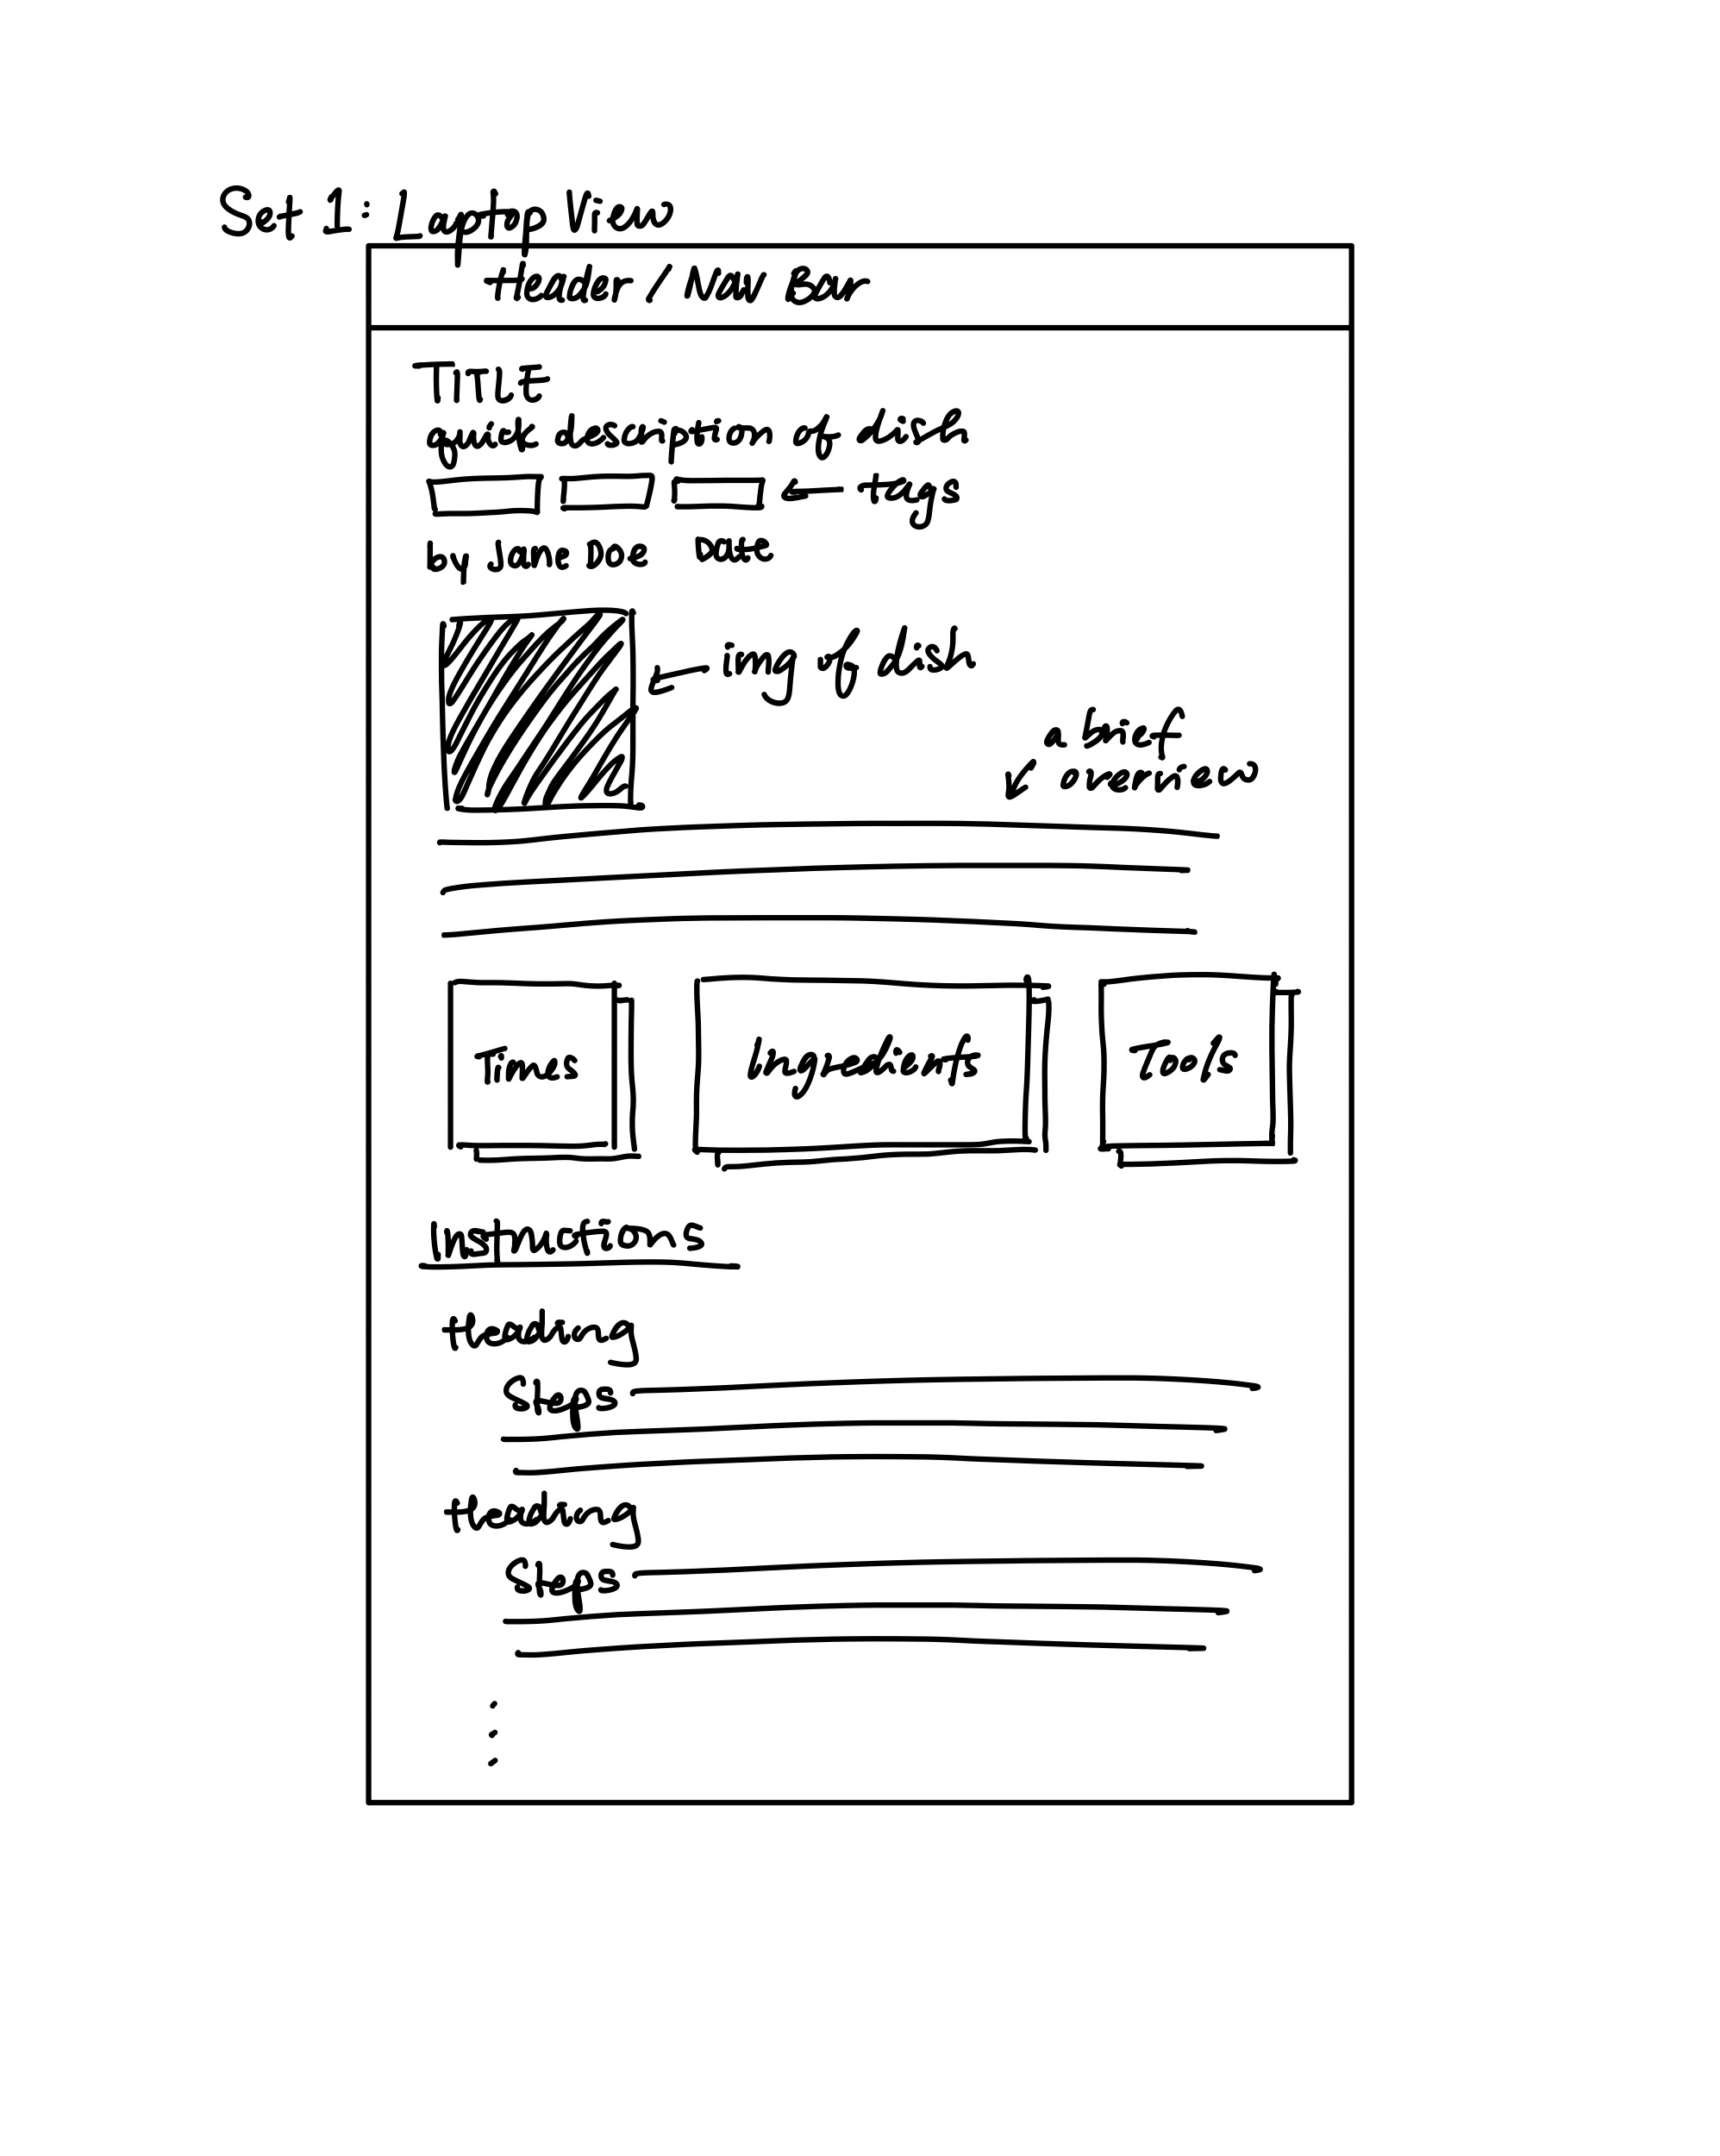 Set 1: Laptop View
Header / Nav Bar
TITLE
quick description of dish
← tags
by Jane Doe Date
img of dish
a brief
overview
Times
Ingredients
Tools
Instructions
Heading
Steps
Heading
Steps